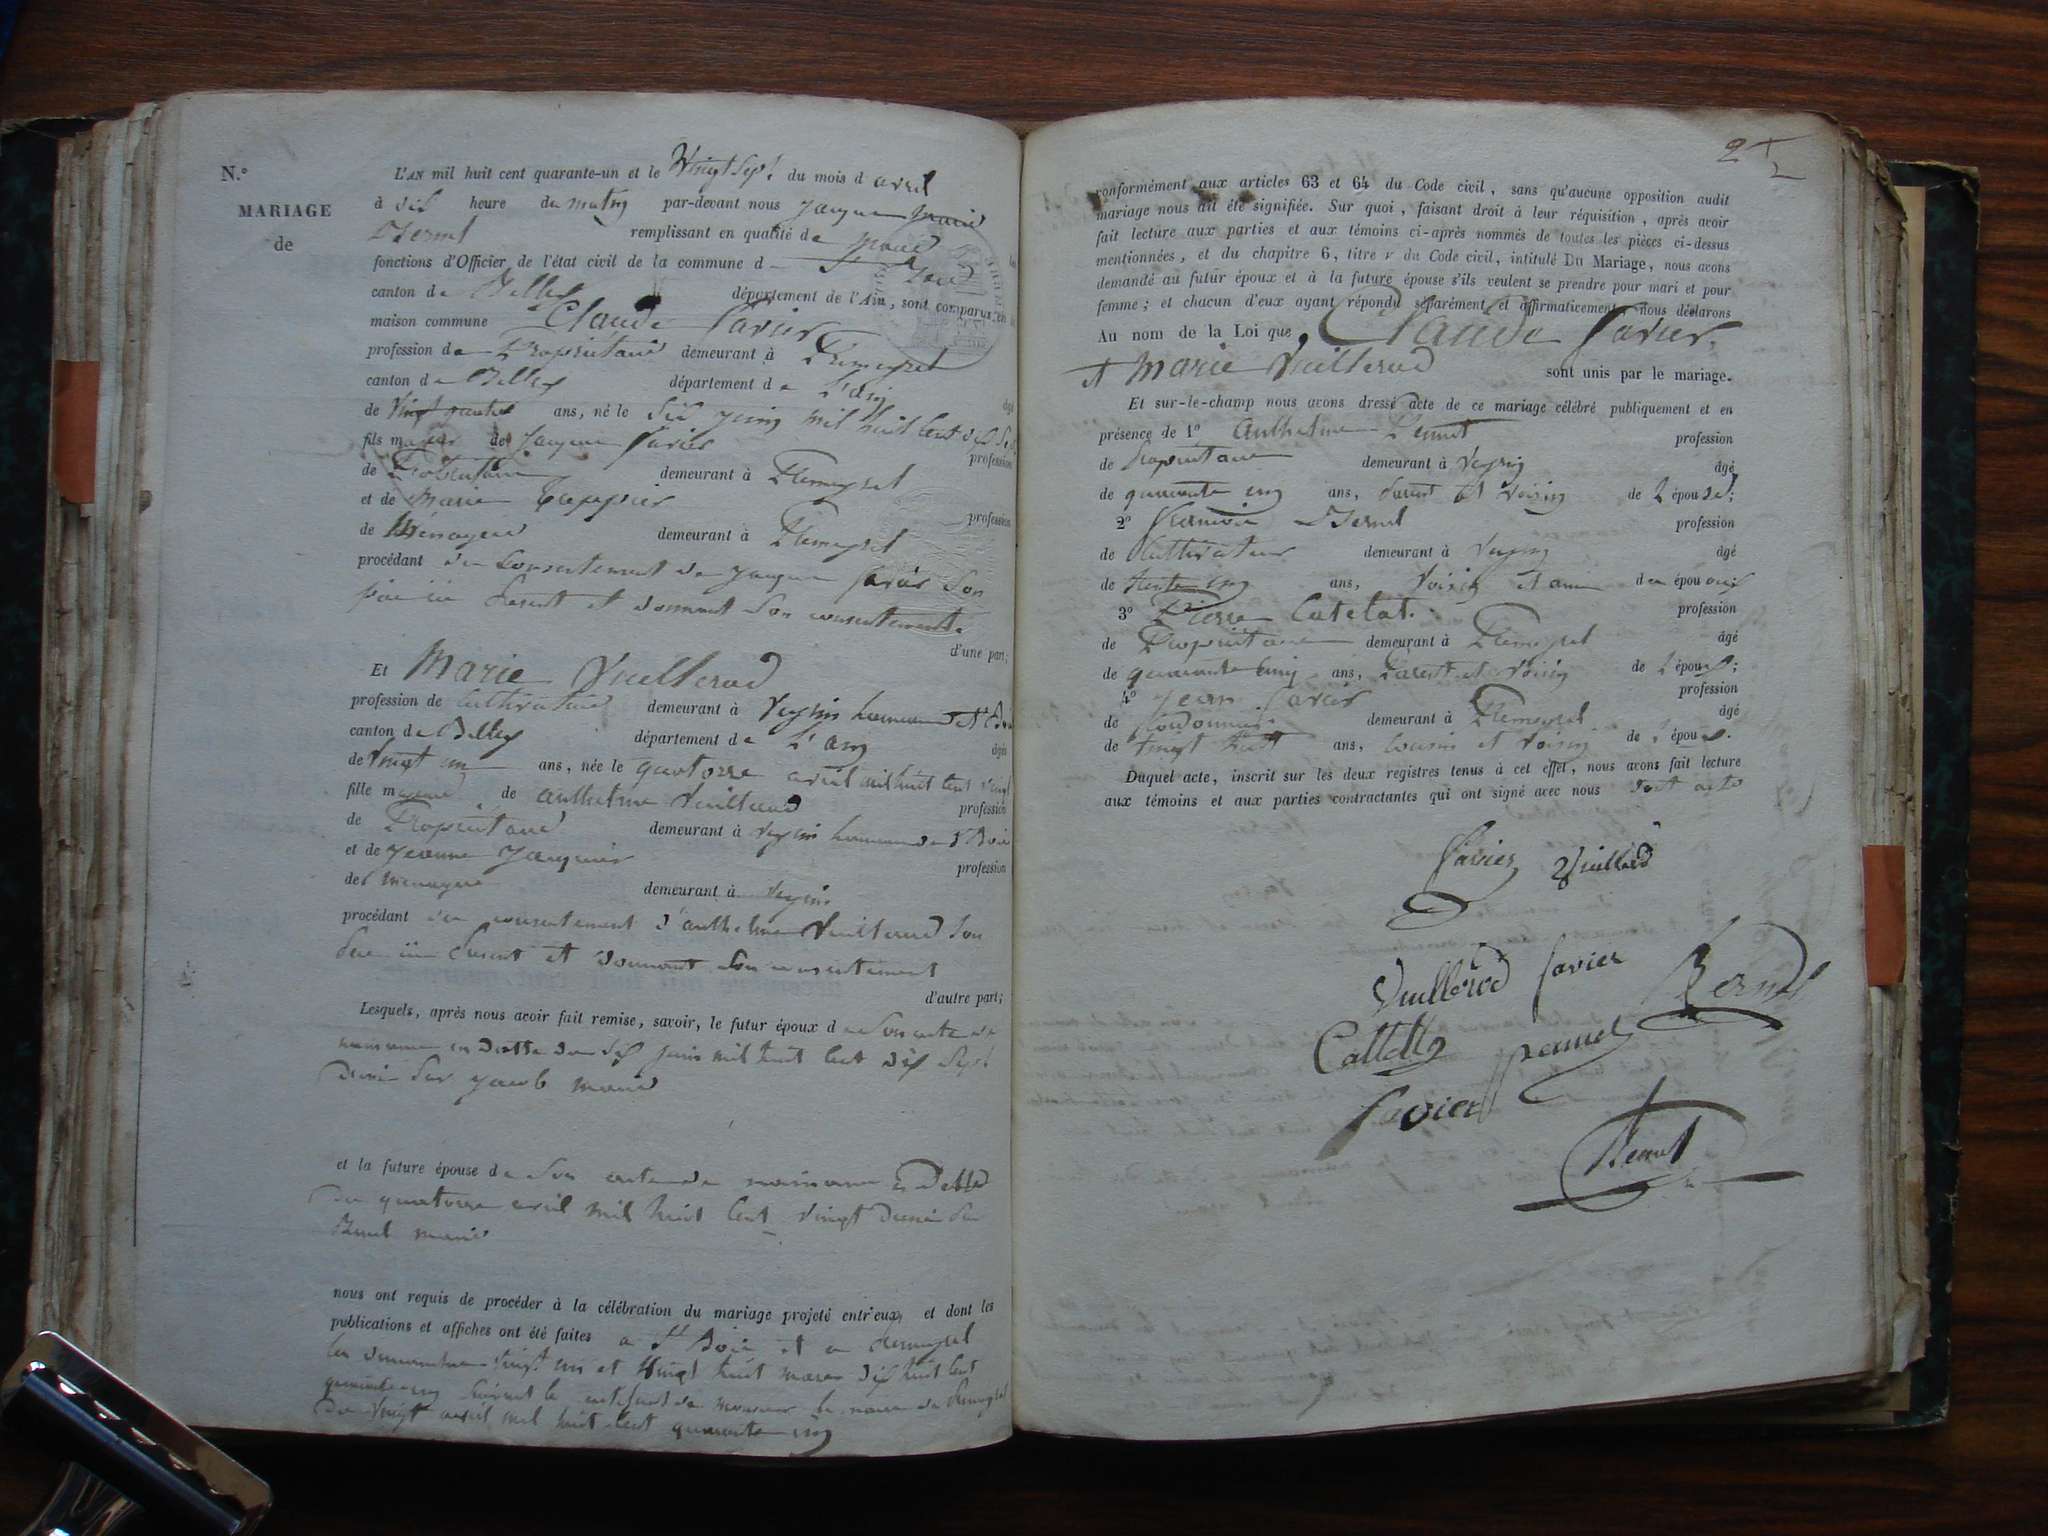 N.º
MARIAGE
de
L'AN mil huit cent quarante-un et le Vingt Sept du mois d avril
à dix heure du matin par-devant nous Jacques Marie
Bernet remplissant en qualité de Maire
fonctions d'Officier de l'état civil de la commune d St Boid
canton de Belley département de l'Ain, sont comparus en la
maison commune Claude Savier
profession de Proprietaire demeurant à Premeyzel
canton de Belley département de L'ain
âgé
de Vingt quatre ans, né le dix juin mil huit cent dix Sept
fils majeur de Jacque Savier
profession
de Proprietaire demeurant à Premeyzel
et de Marie
profession
de Ménagere demeurant à Premeyzel
procédant du Consentement de Jacque Savier Son
père ici présent et donnant Son consentement
d'une part;
Et Marie Vuillerod
profession de cultivatrice demeurant à Veyrin commune St Boid
canton de Belley département de L'ain
âgée
de Vingt un ans, née le quatorze avril mil huit cent vingt
fille majeure de anthelme Vuillerod
profession
de Proprietaire demeurant à Veyrin commune de St Boid
et de Jeanne Jacquier
profession
de menagere demeurant à Veyrin
procédant du consentement d'anthelme Vuillerod Son
Pere ici present et donnant Son consentement
d'autre part;
Lesquels, après nous avoir fait remise, savoir, le futur époux de Son acte de
naissance en datte du dix juin mil huit cent dix Sept
maire
et la future épouse de Son acte de naissance en datte
du quatorze avril mil huit cent vingt
maire
nous ont requis de procéder à la célébration du mariage projeté entr'eux, et dont les
publications et affiches ont été faites a St Boid et a Premeyzel
les dimanches vingt un et Vingt huit mars dix huit cent
quarante un suivant le certificat de monsieur le maire de Premeyzel
du Vingt avril mil huit cent quarante un
2
conformément aux articles 63 et 64 du Code civil, sans qu'aucune opposition audit
mariage nous ait été signifiée. Sur quoi, faisant droit à leur réquisition, après avoir
fait lecture aux parties et aux témoins ci-après nommés de toutes les pièces ci-dessus
mentionnées, et du chapitre 6, titre v du Code civil, intitulé Du Mariage, nous avons
demandé au futur époux et à la future épouse s'ils veulent se prendre pour mari et pour
femme; et chacun d'eux ayant répondu séparément et affirmativement, nous déclarons
Au nom de la Loi que, Claude Savier
et Marie Vuillerod sont unis par le mariage.
Et sur-le-champ nous avons dressé acte de ce mariage célébré publiquement et en
présence de 1º Anthelme Pernet profession
de Proprietaire demeurant à Veyrin âgé
de quarante cinq ans, parent et Voisin de l'épouse;
2º François Bernet profession
de Cultivateur demeurant à Veyrin âgé
de trente cinq ans, Voisin et ami de épouse
3º Pierre Catelat profession
de Proprietaire demeurant à Premeyzel âgé
de quarante cinq ans, Parent et Voisin de l'époux;
4º Jean Savier profession
de Cordonnier demeurant à Premeyzel âgé
de vingt huit ans, Cousin et Voisin de l'époux.
Duquel acte, inscrit sur les deux registres tenus à cet effet, nous avons fait lecture
aux témoins et aux parties contractantes qui ont signé avec nous Dont acte
Savier Vuillerod
Vuillerod Savier Bernet
pernet
Savier
Bernet